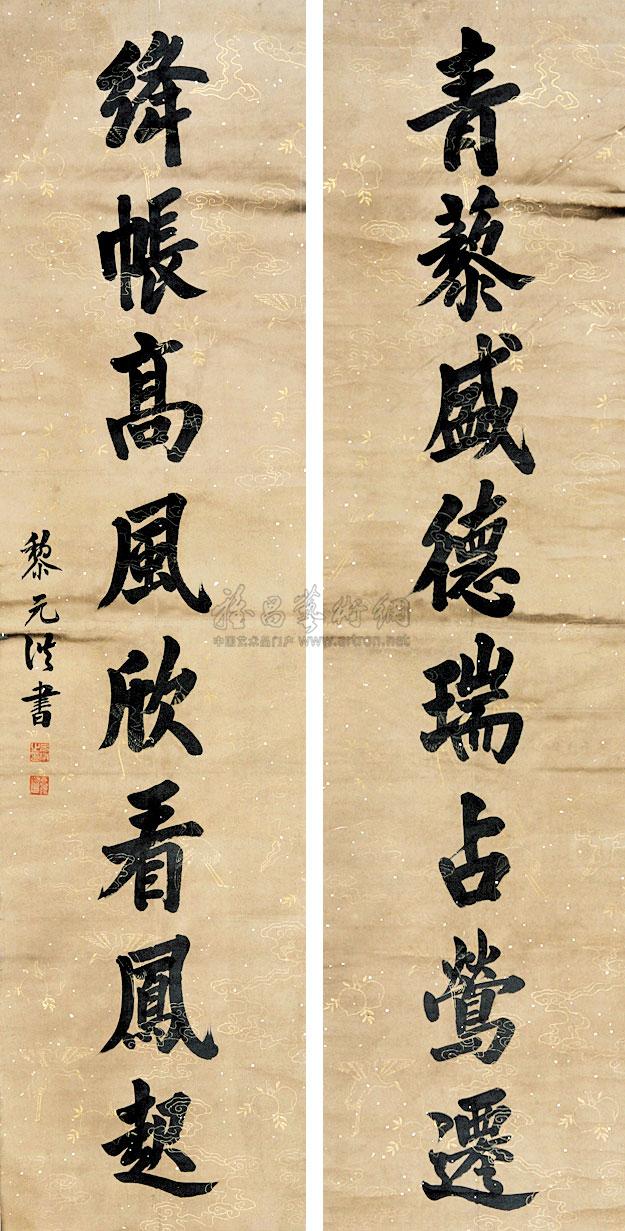 青藜盛德瑞占鶯遷
絳帳高風欣看鳳起
黎元洪書
雅昌藝術網
中国艺术品门户 www.artron.net